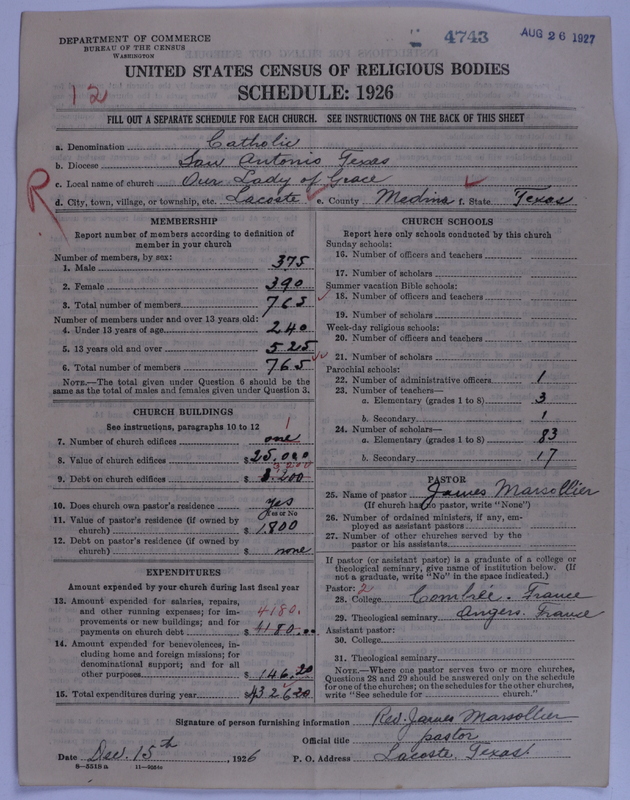 DEPARTMENT OF COMMERCE
BUREAU OF THE CENSUS
WASHINGTON
4743
AUG 26 1927
UNITED STATES CENSUS OF RELIGIOUS BODIES
SCHEDULE: 1926
12
FILL OUT A SEPARATE SCHEDULE FOR EACH CHURCH. SEE INSTRUCTIONS ON THE BACK OF THIS SHEET
a. Denomination Catholic
b. Diocese San Antonio Texas
c. Local name of church Our Lady of Grace
R
d. City, town, village, or township, etc. Lacoste e. County Medina f. State Texas
MEMBERSHIP
Report number of members according to definition of
member in your church
Number of members, by sex:
1. Male 375
2. Female 390
3. Total number of members 765
Number of members under and over 13 years old:
4. Under 13 years of age 240
5. 13 years old and over 525
6. Total number of members 765
NOTE.—The total given under Question 6 should be
same as the total of males and females given under Question 3.
CHURCH BUILDINGS
See instructions, paragraphs 10 to 12
1
7. Number of church edifices one
8. Value of church edifices $25,000
3,200
9. Debt on church edifices $3.200
10. Does church own pastor's residence yes
Yes or No
11. Value of pastor's residence (if owned by
church) $1,800
12. Debt on pastor's residence (if owned by
church) $ none
EXPENDITURES
Amount expended by your church during last fiscal year
13. Amount expended for salaries, repairs,
and other running expenses; for im-
provements or new buildings; and for
4180.
payments on church debt $4180.00
14. Amount expended for benevolences, in-
cluding home and foreign missions; for
denominational support; and for all
other purposes $146.20
15. Total expenditures during year $4326.20
CHURCH SCHOOLS
Report here only schools conducted by this church
Sunday schools:
16. Number of officers and teachers
17. Number of scholars
Summer vacation Bible schools:
18. Number of officers and teachers
19. Number of scholars
Week-day religious schools:
20. Number of officers and teachers
21. Number of scholars
Parochial schools:
22. Number of administrative officers 1
23. Number of teachers—
a. Elementary (grades 1 to 8) 3
b. Secondary 1
24. Number of scholars—
a. Elementary (grades 1 to 8) 83
b. Secondary 17
PASTOR
25. Name of pastor James Marsollier
(If church has no pastor, write "None")
26. Number of ordained ministers, if any, em-
ployed as assistant pastors
27. Number of other churches served by the
pastor or his assistants
If pastor (or assistant pastor) is a graduate of a college or
theological seminary, give name of institution below. (If
not a graduate, write "No" in the space indicated.)
Pastor: 2
28. College Combrée. France
29. Theological seminary Angers. France
Assistant pastor:
30. College
31. Theological seminary
NOTE.—Where one pastor serves two or more churches,
Questions 28 and 29 should be answered only on the schedule
for one of the churches; on the schedules for the other churches,
write "See schedule for church."
Signature of person furnishing information Rev. James Marsollier
Official title pastor
Date Dec. 15th, 1926 P. O. Address Lacoste, Texas.
8—5518 a 11—9054a